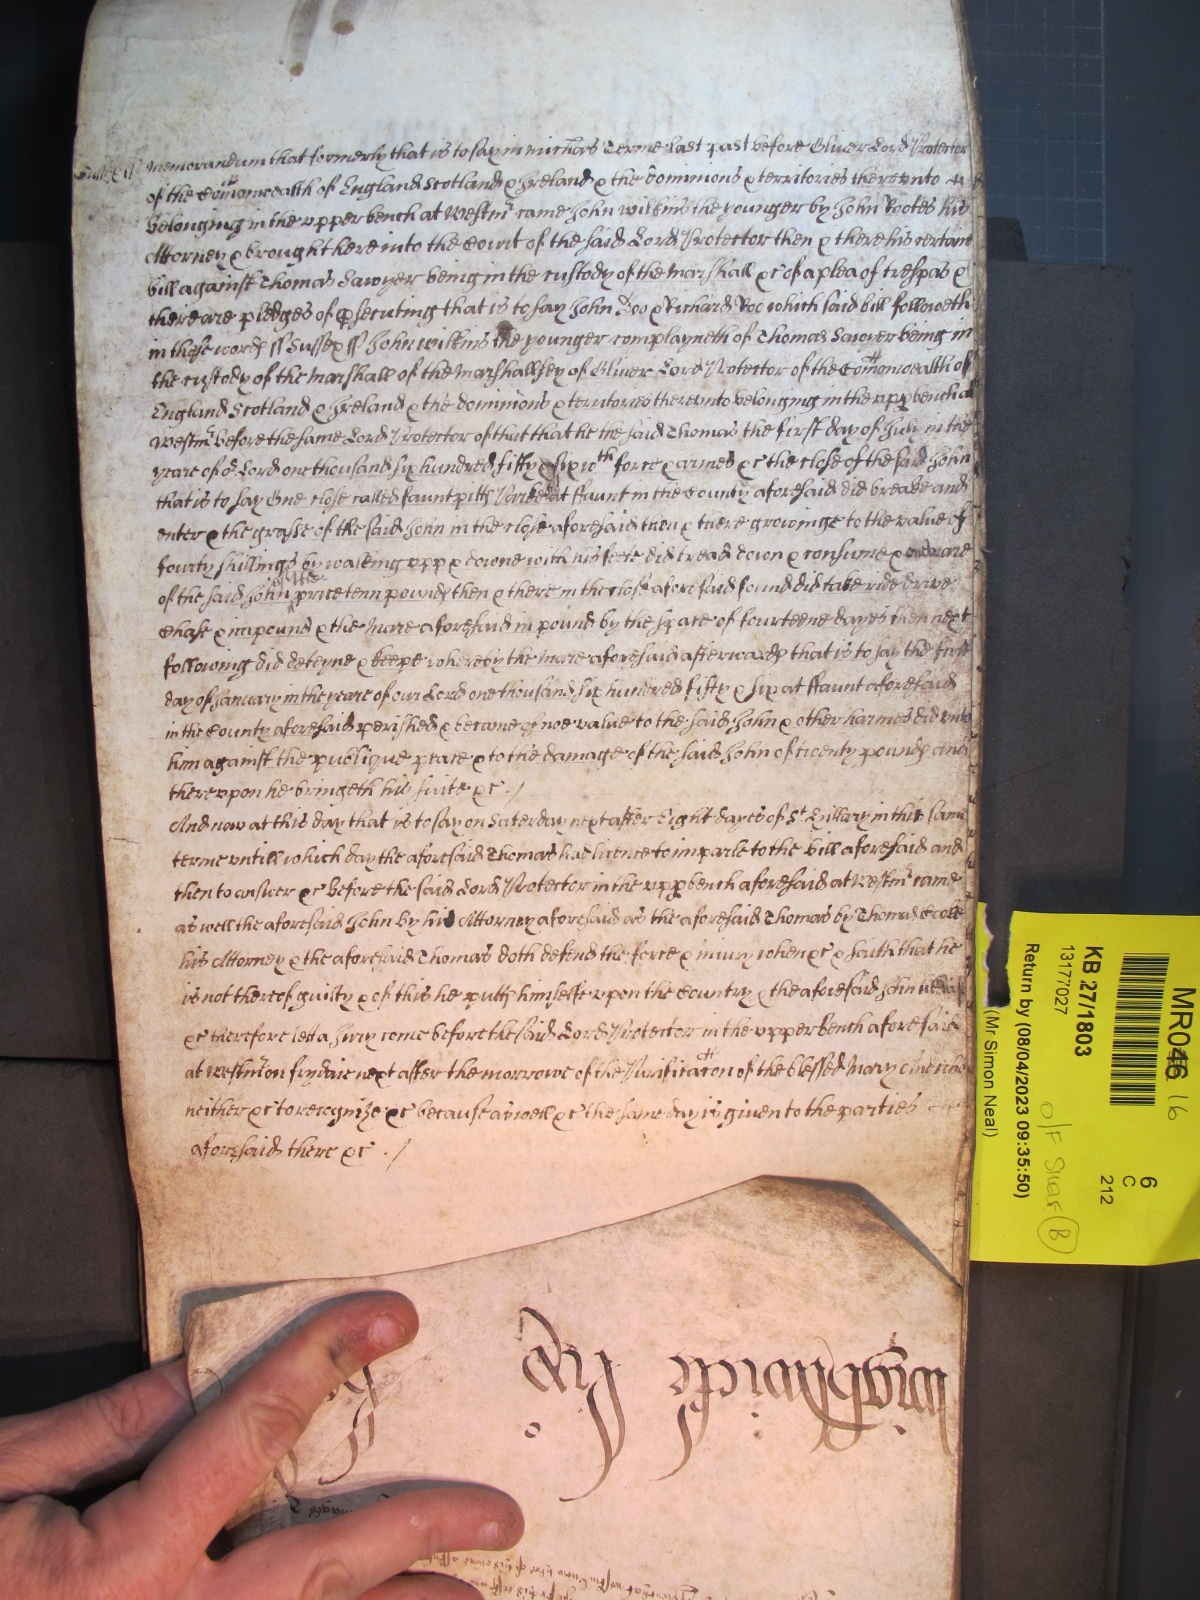 Sussex ss Memorandum that formerly that is to say in mich'as Terme last past before Oliver Lord Protector
of the Comonwealth of England Scotland & Ireland & the dominions & territories thereunto
belonging in the upper bench at Westm' came John Wilkins the younger by John Rootes his
Attorney & brought here into the Court of the said Lord Protector then & there his certaine
bill against Thomas Sawyer being in the custody of the Marshall &c of a plea of trespas &
there are pledges of p'secuting that is to say John Doo & Richard Roo which said bill followeth
in these words ss Sussex ss John Wilkins the younger complayneth of Thomas Sawyer being in
the custody of the Marshall of the Marshallsey of Oliver Lord Protector of the Comonwealth of
England Scotland & Ireland & the dominions & territories thereunto belonging in the upp bench at
Westm' before the same Lord Protector of that that he the said Thomas the first day of July in the
yeare of or Lord one thousand six hundred fifty & force & armes &c the close of the said John
that is to say One close called fauntpitts at ffaunt in the County aforesaid did breake and
enter & the grasse of the said John in the close aforesaid then & there growinge to the value of
fourty shillings by walking upp & downe with his feete did tread down & consume & mare
of the said John price tenn pounds then & there in the close aforesaid found did take ride drive
chase & impound & the Mare aforesaid in pound by the space of fourteene dayes then next
following did deteyne & keepe whereby the mare aforesaid afterwards that is to say the first
day of January in the yeare of our Lord one thousand six hundred fifty & six at ffaunt aforesaid
in the County aforesaid perished & became of noe value to the said John & other harmes did unto
him against the publique peace & to the damage of the said John of twenty pounds and
thereupon he bringeth his suite &c ./
And now at this day that is to say on Saterday next after Eight dayes of St Hillary in this same
terme untill which day the aforesaid Thomas had licence to imparle to the bill aforesaid and
then to answer &c before the said Lord Protector in the upp bench aforesaid at Westm' came
as well the aforesaid John by his Attorney aforesaid as the aforesaid Thomas by Thomas
his Attorney & the aforesaid Thomas doth defend the force & iniury when &c & saith that he
is not thereof guilty & of this he putts himselfe upon the Country & the aforesaid John likewise
&c therefore lett a Jury come before the said Lord Protector in the upper bench aforesaid
at Westm' on next after the morrowe of the Purificac'on of the blessed Mary
neither &c to recognize &c because aswell &c the same day is given to the parties
aforesaid there &c ./
MR046 16
KB 27/1803
13177027
6
C
212
Return by (08/04/2023 09:35:50)
(Mr Simon Neal)
O/F
B
Wightwicke